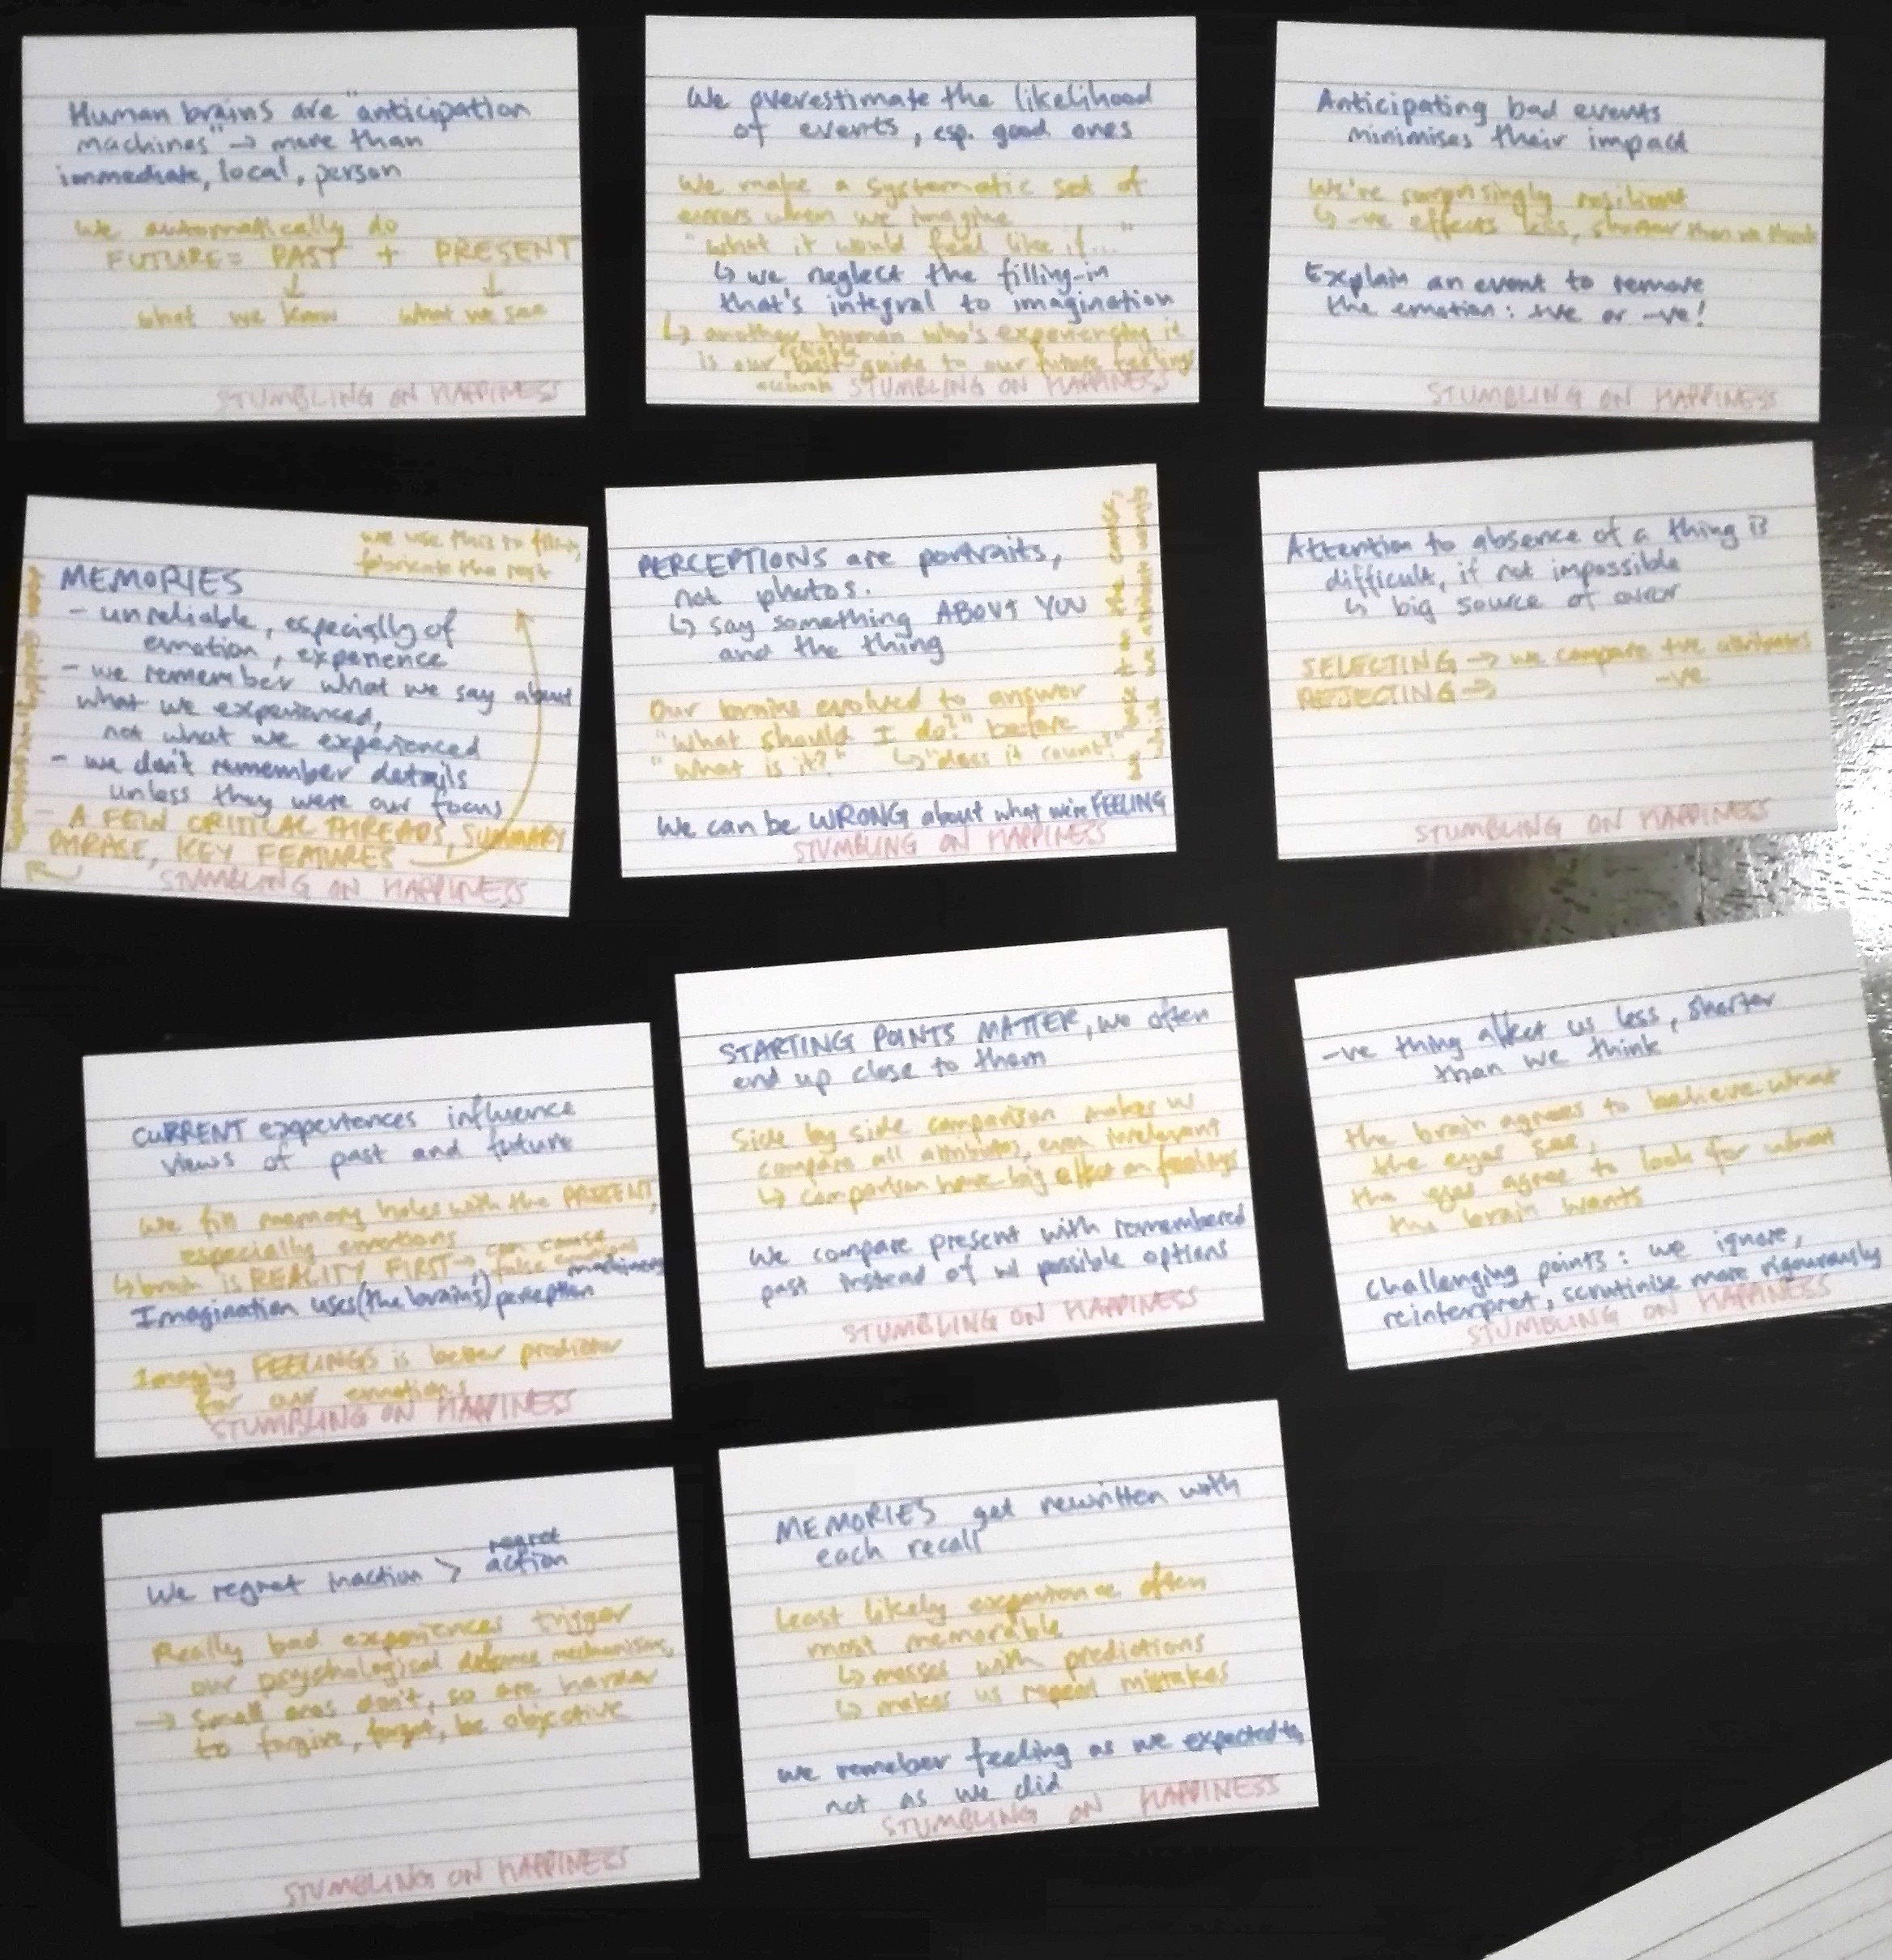 Human brains are "anticipation
machines" → more than
immediate, local, person
We automatically do
FUTURE = PAST + PRESENT
↓ ↓
what we know what we see
STUMBLING ON HAPPINESS
We overestimate the likelihood
of events, esp. good ones
We make a systematic set of
errors when we imagine
"what it would feel like if..."
↳ we neglect the filling-in
that's integral to imagination
↳ another human who's experiencing it
is our best guide to our future feelings
STUMBLING ON HAPPINESS
Anticipating bad events
minimises their impact
We're surprisingly resilient
↳ -ve effects less, shorter than we think
Explain an event to remove
the emotion: +ve or -ve!
STUMBLING ON HAPPINESS
we use this to filling
fabricate the rest
MEMORIES
- unreliable, especially of
emotion, experience
- we remember what we say about
what we experienced,
not what we experienced
- we don't remember details
unless they were our focus
- A FEW CRITICAL THREADS, SUMMARY
PHRASE, KEY FEATURES
STUMBLING ON HAPPINESS
PERCEPTIONS are portraits,
not photos.
↳ say something ABOUT YOU
and the thing
Our brains evolved to answer
"What should I do?" before
"What is it?" ↳ "does it count?"
We can be WRONG about what we're FEELING
STUMBLING ON HAPPINESS
Attention to absence of a thing is
difficult, if not impossible
↳ big source of error
SELECTING → we compare +ve attributes
REJECTING → -ve
STUMBLING ON HAPPINESS
CURRENT experiences influence
views of past and future
We fill memory holes with the PRESENT,
especially emotions
↳ brain is REALITY FIRST → can cause
false
machinery
Imagination uses (the brains) perception
Imaging FEELINGS is better predictor
for our emotions
STUMBLING ON HAPPINESS
STARTING POINTS MATTER, we often
end up close to them
Side by side comparison makes us
compare all attributes, even irrelevant
↳ comparison have big effect on feelings
We compare present with remembered
past instead of w/ possible options
STUMBLING ON HAPPINESS
-ve thing affect us less, shorter
than we think
the brain agrees to believe what
the eyes see,
the eyes agree to look for what
the brain wants
Challenging points: we ignore,
reinterpret, scrutinise more rigourously
STUMBLING ON HAPPINESS
regret
We regret inaction > action
Really bad experiences trigger
our psychological defence mechanisms,
→ Small ones don't, so are harder
to forgive, forget, be objective
STUMBLING ON HAPPINESS
MEMORIES get rewritten with
each recall
Least likely experience often
most memorable
↳ messes with predictions
↳ makes us repeat mistakes
we remeber feeling as we expected to,
not as we did
STUMBLING ON HAPPINESS